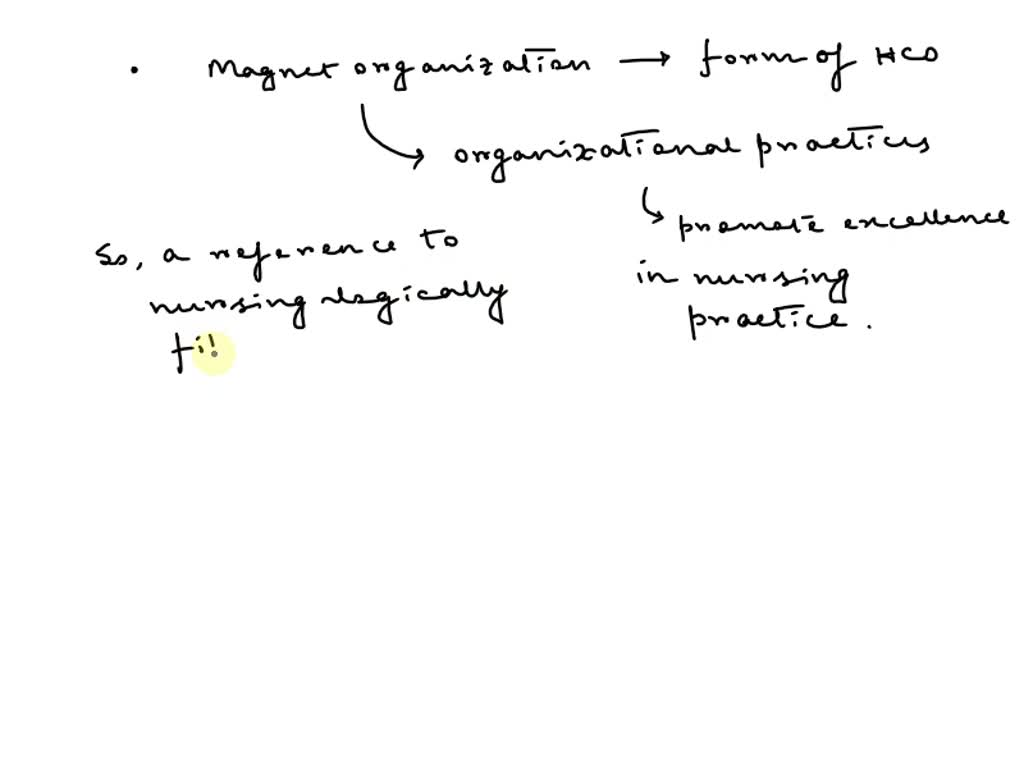 • Magnet organization → form of HCO
organizational practices
↳ promote excellence
in nursing
practice.
So, a reference to
nursing logically
fit